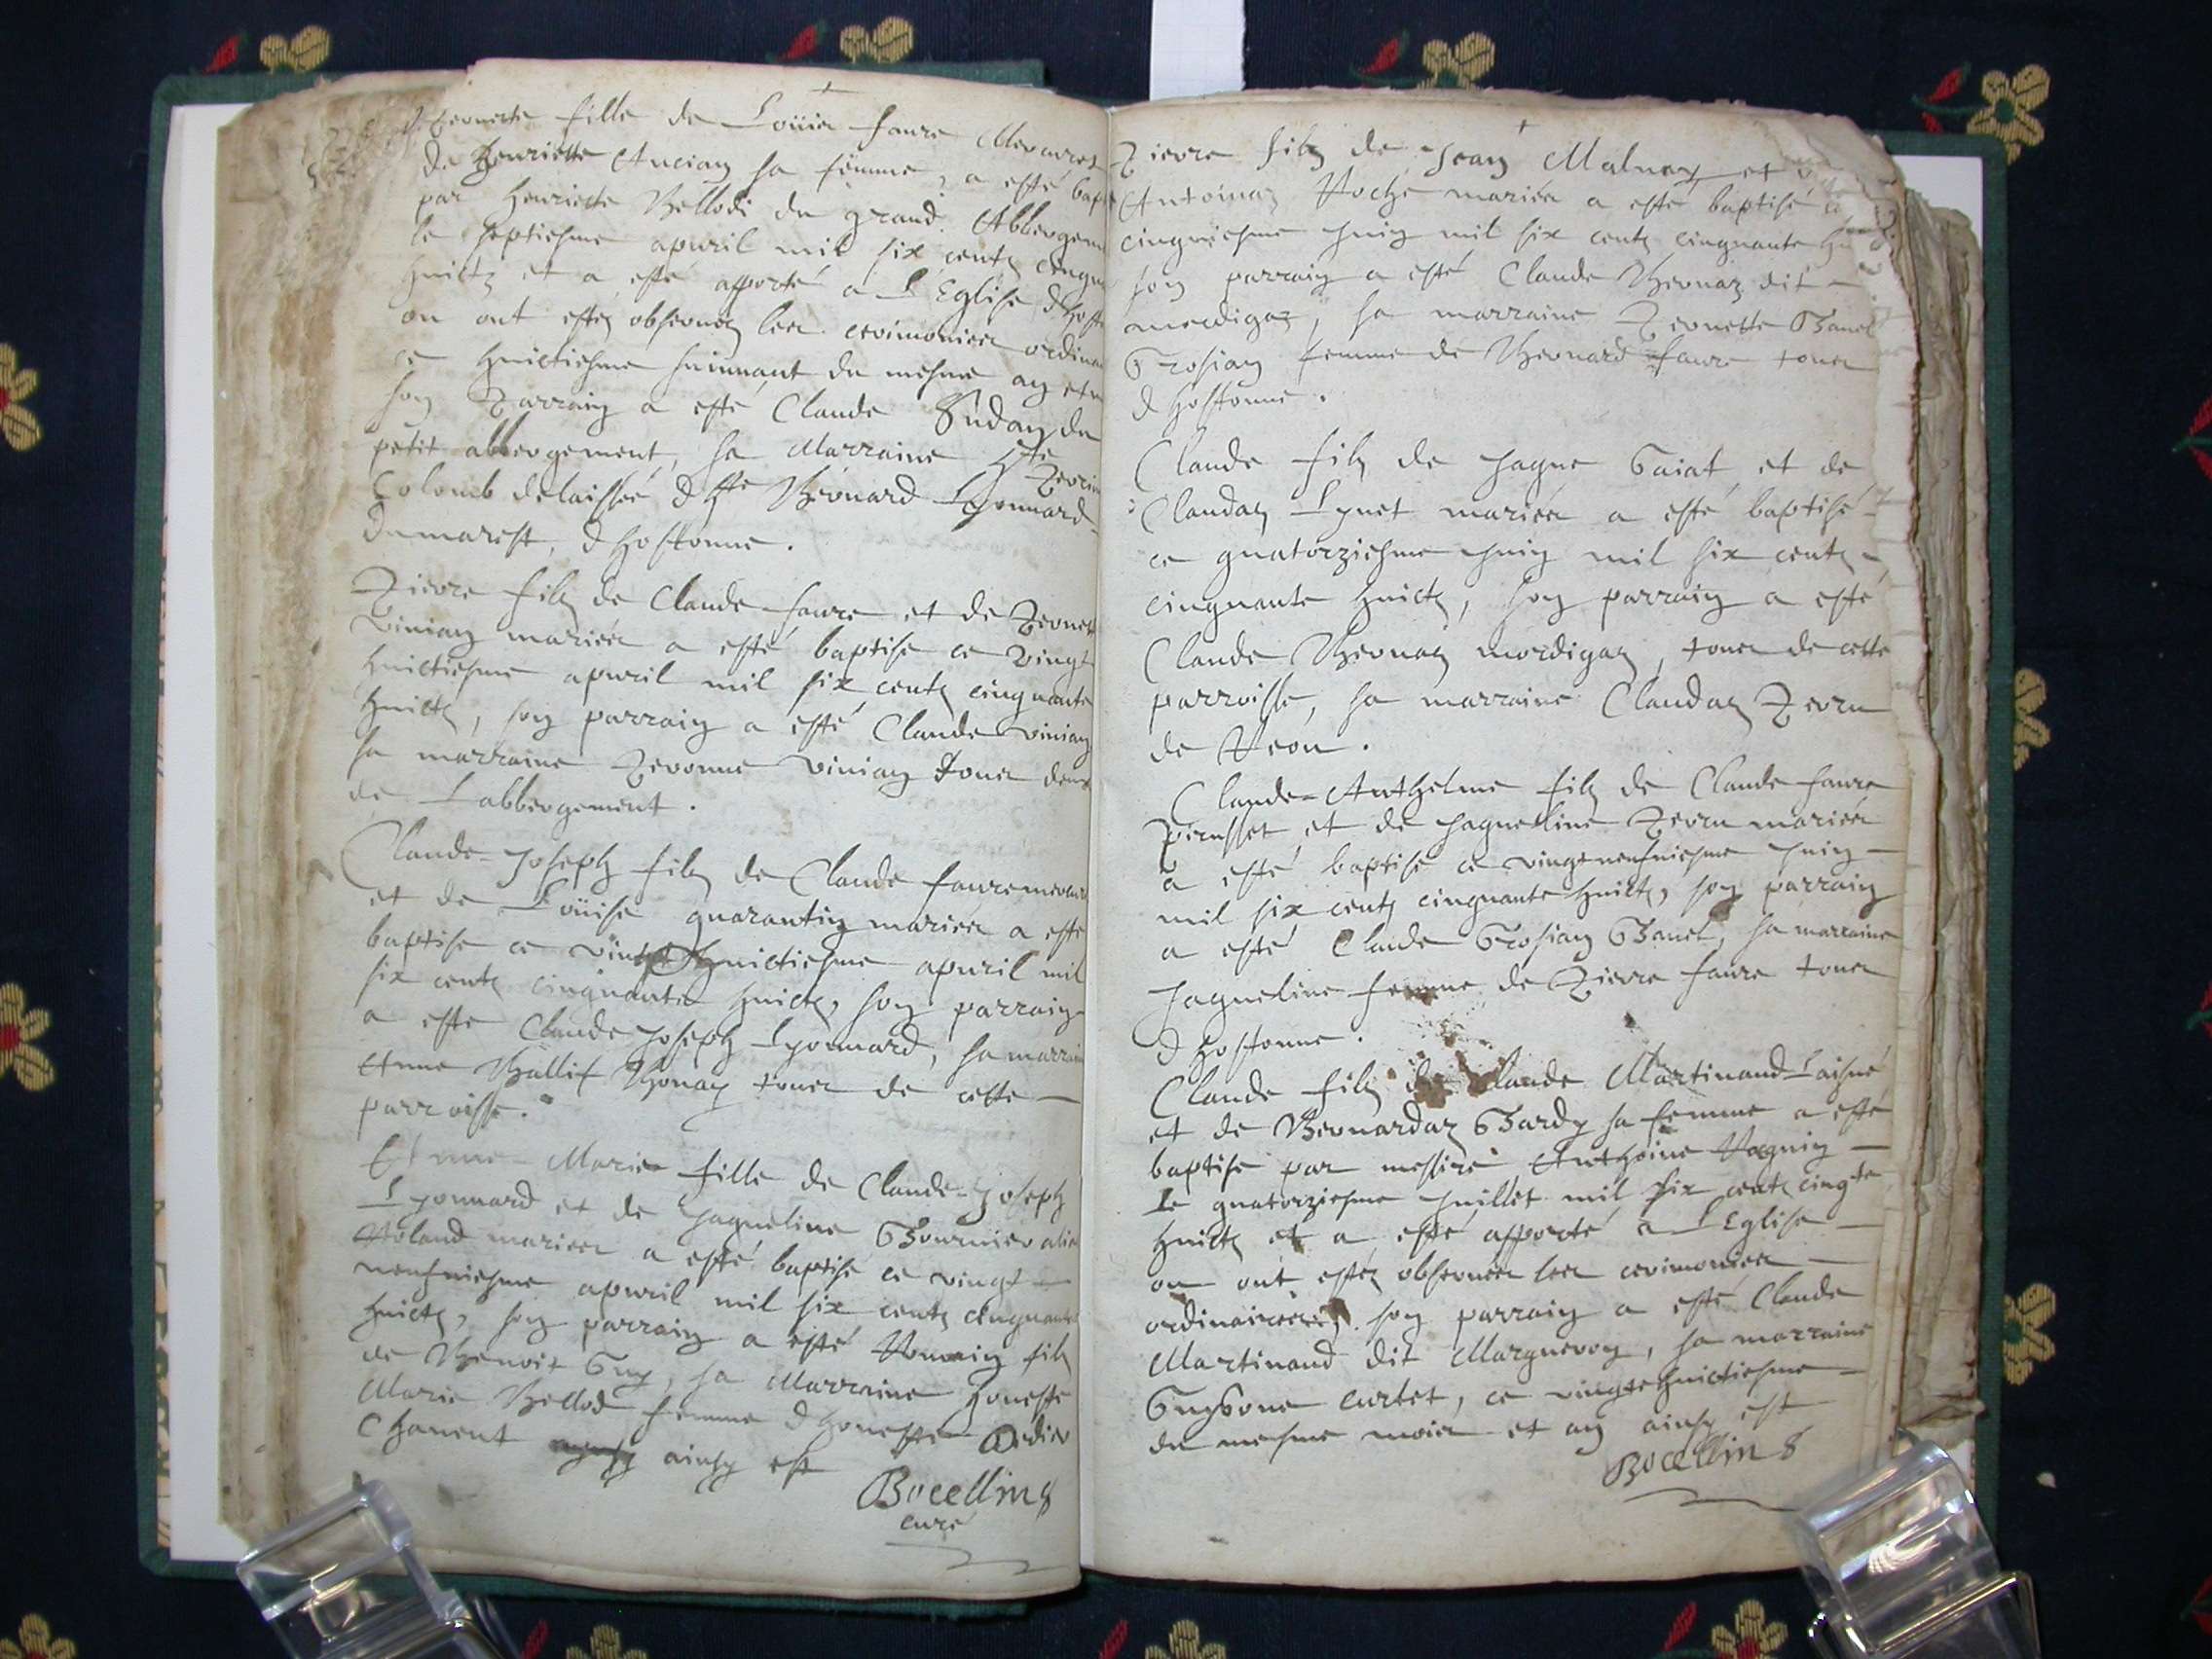 Pernette fille de Loüis faure Mevauret
de Henriette Ancian sa femme, a esté bap
par Henriette Bellod du grand Abbergem
le septiesme apuril mil six centz cinqua
huictz et a esté apporté a L'Eglise d'hosto
ou ont estez obseruez les cerimonies ordina
ce huictiesme suiuuant du mesme an et
son Parrain a esté Claude Sudan du
petit abbergement, sa Marraine hste Perrin
Colomb delaissée d'hste Bernard Lyonnard
dumarest, d'hostonne.
Pierre filz de Claude faure et de Pernett
vinian mariés a esté baptise ce vingt
huictiesme apuril mil six centz cinquante
huictz, son parrain a esté Claude vinian
sa marraine Pevonne vinian tous deux
de Labbergement.
Claude-Joseph filz de Claude faure mevaur
et de Loüise quarantin mariés a esté
baptise ce vingt huictiesme apuril mil
six centz cinquante huictz, son parrain
a esté Claude Joseph Lyonnard, sa marrain
Anne Ballif Bonaz tous de cette
parroisse.
Anne-Marie fille de Claude-Joseph
Lyonnard et de Jaqueline Bournier alia
Roland mariés a esté baptisé ce vingt
neufuiesme apuril mil six centz cinquante
huictz, son parrain a esté Romain filz
de Benoit Guy, sa Marraine honeste
Marie Bellod femme d'honeste Didier
Chanent ainsy est
Bocellins
curé
Pierre filz de Jean Malnay et
Antoinaz Roche mariés a esté baptisé ce
cinquiesme Juin mil six centz cinquante hu
son parrain a esté Claude Bernaz dit
mordigaz, sa marraine Pernette Banet
Grosian femme de Bernard faure tous
d'hostonne.
Claude filz de Jaque Gaiat et de
Claudaz Lynet mariés a esté baptisé
ce quatorziesme Juin mil six centz
cinquante huictz, son parrain a esté
Claude Bernaz mordigaz, tous de cette
parroisse, sa marraine Claudaz Pevru
de Reon.
Claude-Anthelme filz de Claude faure
perusset, et de Jaqueline Pevru mariés
a esté baptise ce vingt neufuiesme Juin
mil six centz cinquante huictz, son parrain
a esté Claude Grosian Banet, sa marraine
Jaqueline femme de Pierre faure tous
d'hostonne.
Claude filz de Claude Martinand Laisné
et de Bernardaz Bardy sa femme a esté
baptise par messire Anthoine Vagnin
Le quatorziesme Juillet mil six centz cinqte
huictz et a esté apporté a L'Eglise
ou ont estez obseruées les cerimonies
ordinaires, son parrain a esté Claude
Martinand dit Marqueron, sa marraine
Guygone Curtet, ce vingt huictiesme
du mesme mois et an ainsy est
Bocellins